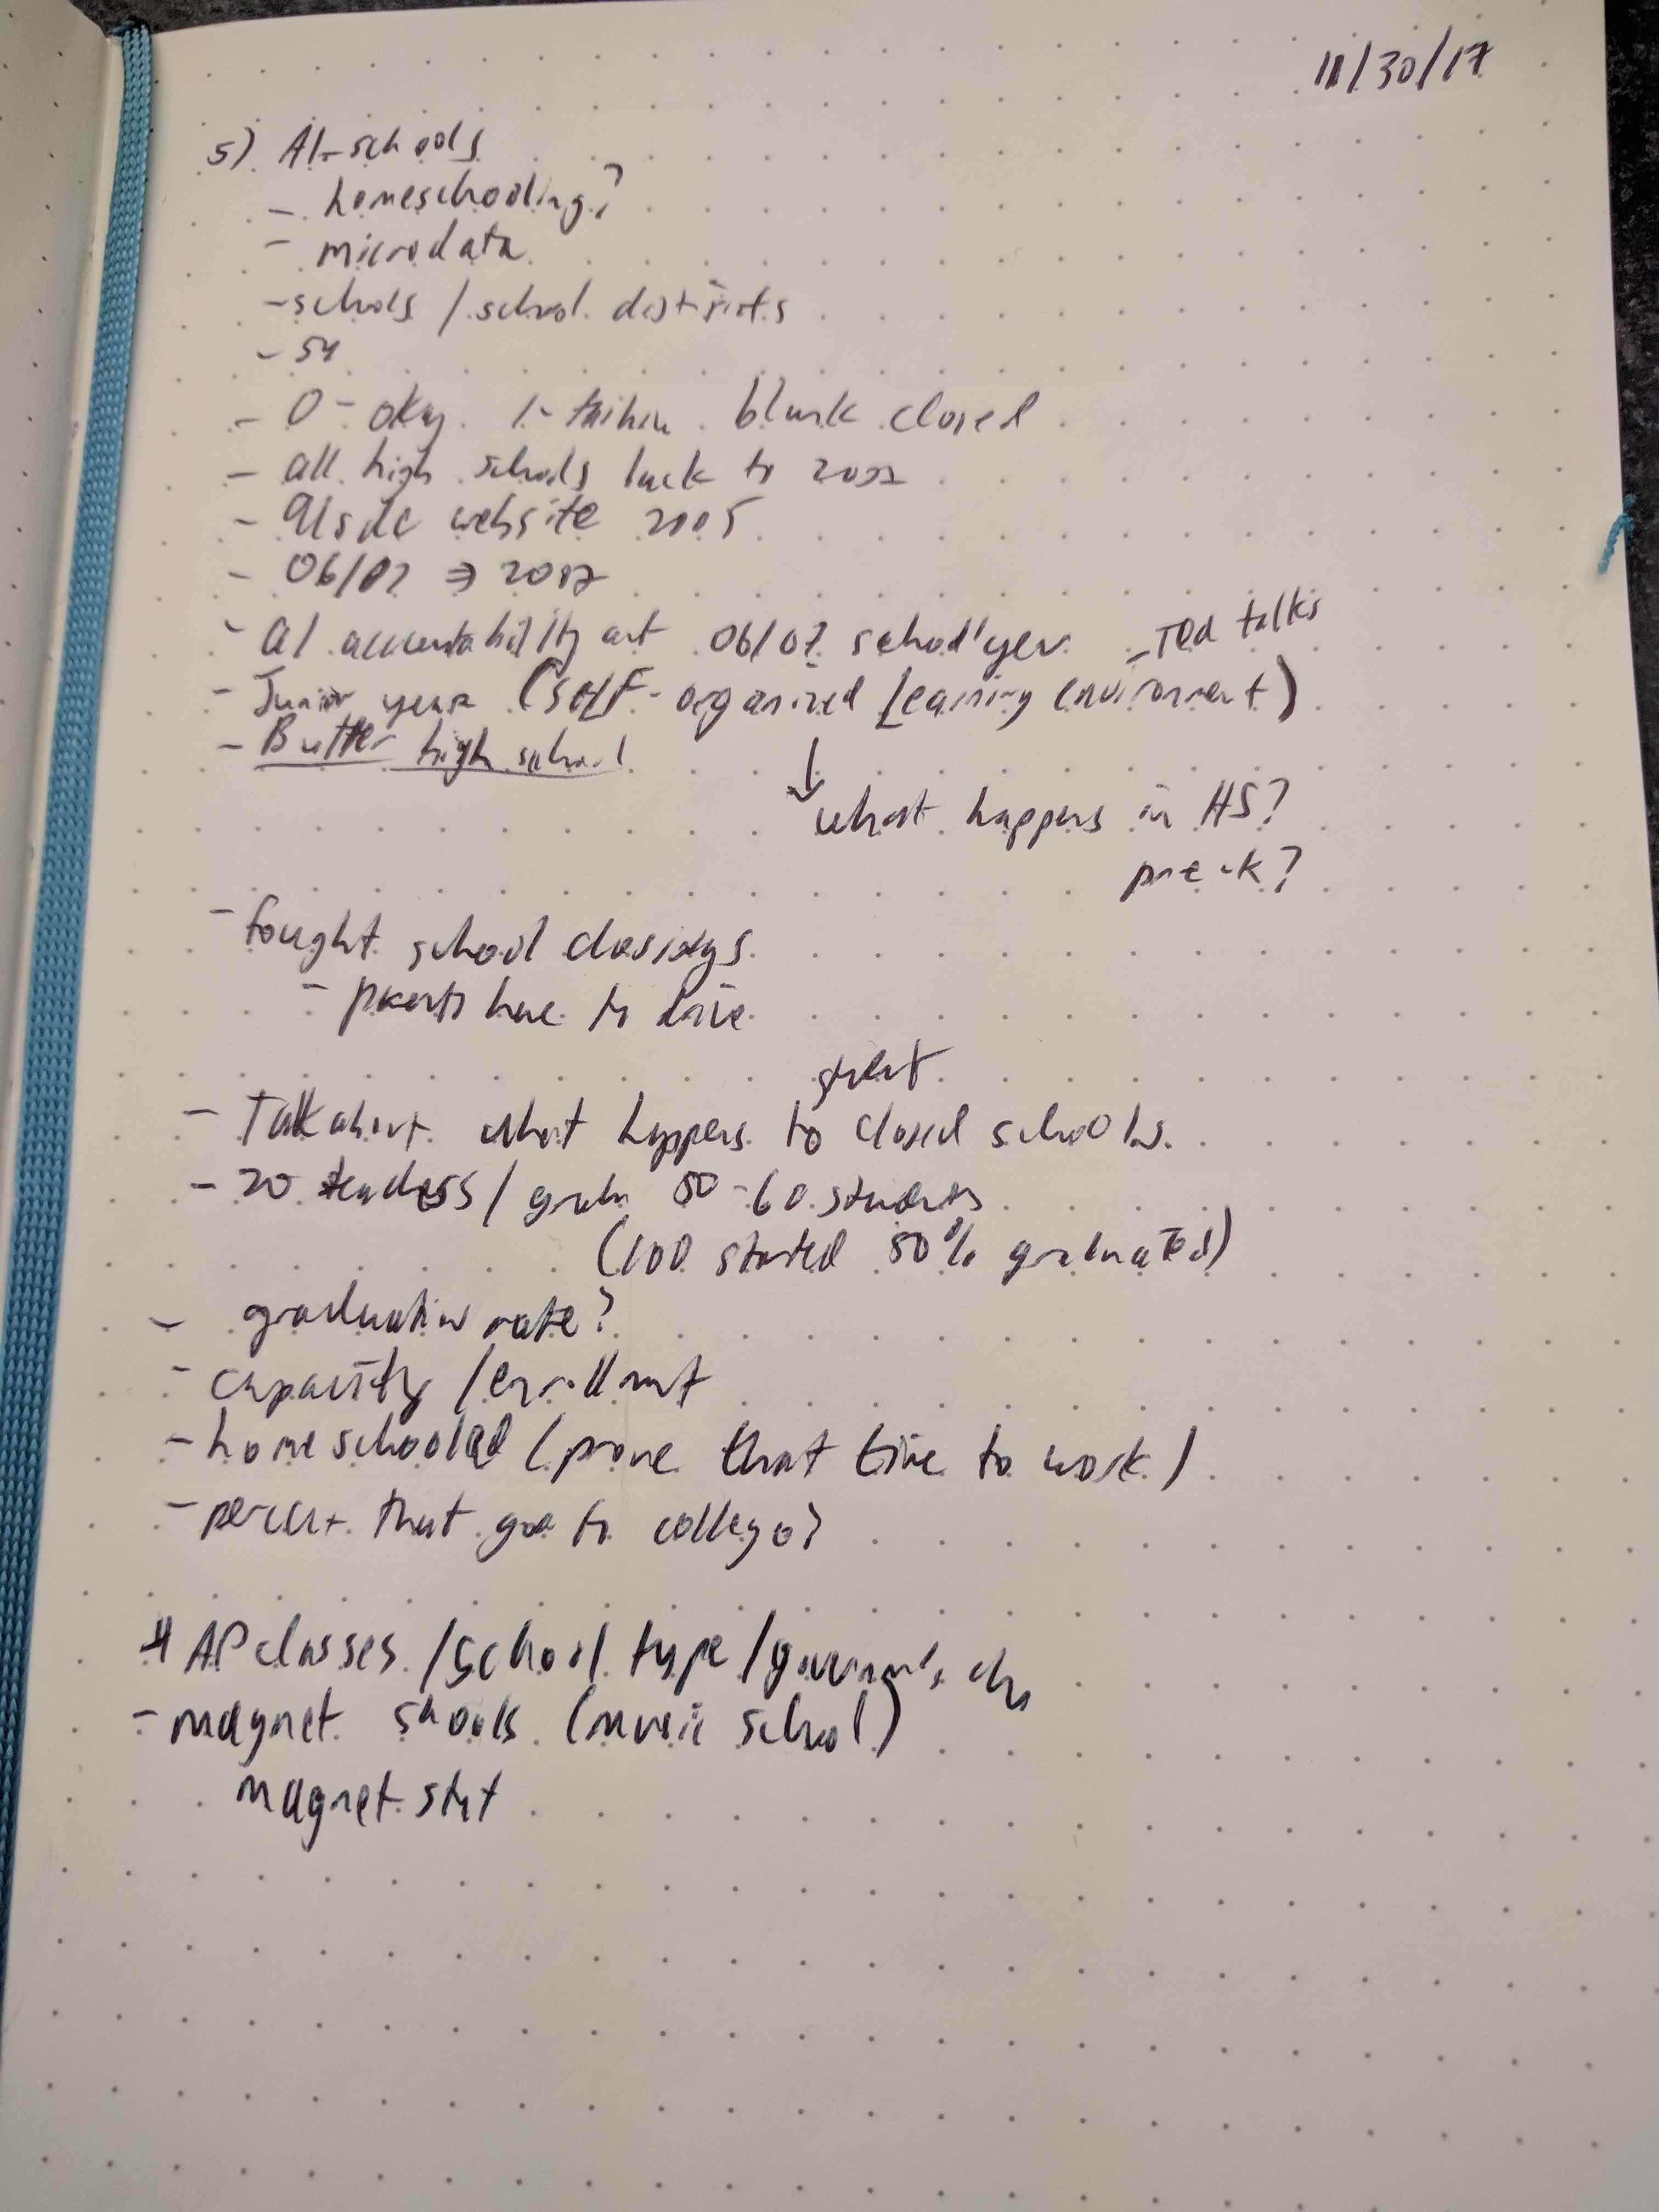 11/30/17
5) Al-schools
- homeschooling?
- microdata
- schools / school districts
- 54
- 0 - okay 1 - failin blank closed
- all high schools back to 2002
- alsde website 2005
- 06/07 ⇒ 2017
- al accountability act 06/07 school year - TED talks
- Junior year (self-organized learning environment)
- Butler high school
↓ what happens in HS?
pre-k?
- fought school closings
- parents have to drive
great
- Talk about what happens to closed schools.
- 20 teachers / grade 50-60 students
(100 started 50% graduated)
- graduation rate?
- capacity / enrollment
- homeschooled (prove that time to work)
- percent that goe to college?
# AP classes / school type /
- magnet schools (music school)
magnet stat